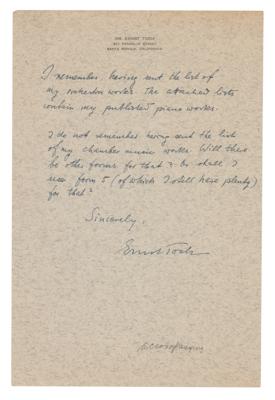 DR. ERNST TOCH
811 FRANKLIN STREET
SANTA MONICA, CALIFORNIA
I remember, having sent the list of
my orchestra works. The attached lists
contain my published piano works.
I do not remember having sent the list
of my chamber music works. Will there
be other forms for that? Or shall I
use form 5 (of which I still have plenty)
for that?
Sincerely,
Ernst Toch